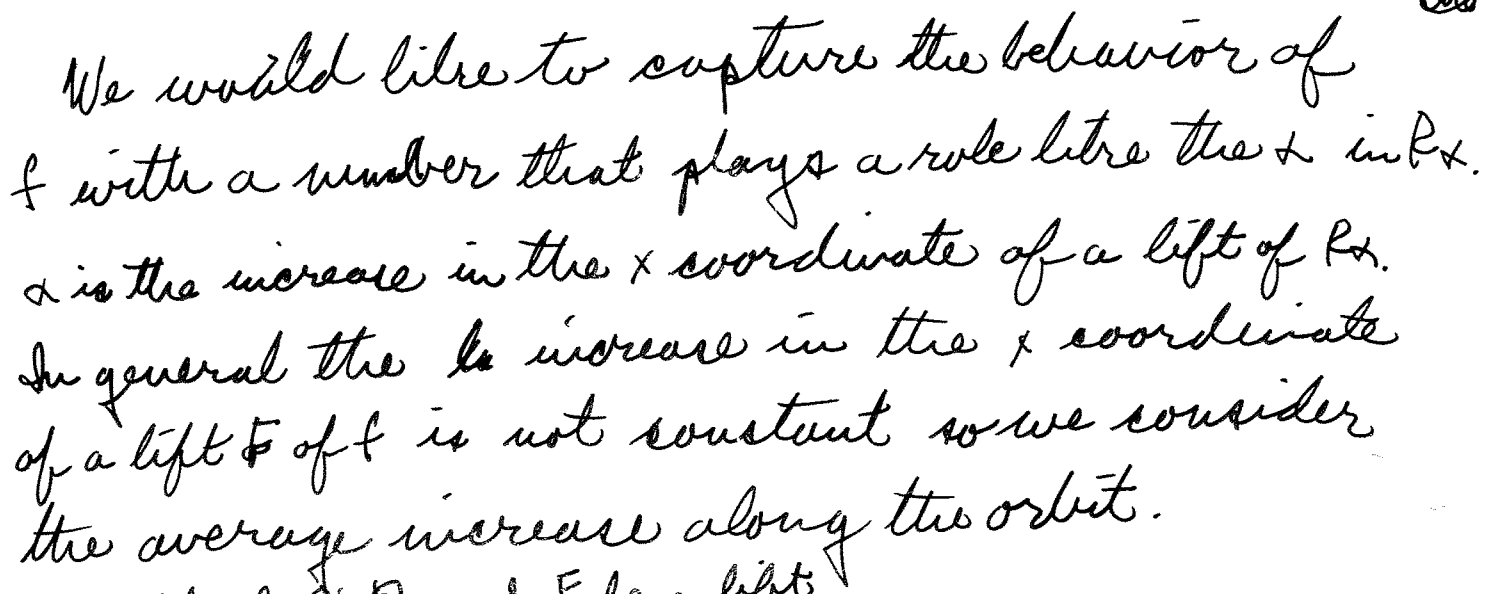 We would like to capture the behavior of
f with a number that plays a role like the α in Rα.
α is the increase in the x coordinate of a lift of Rα.
In general the increase in the x coordinate
of a lift F of f is not constant so we consider
the average increase along the orbit.
F be a lift